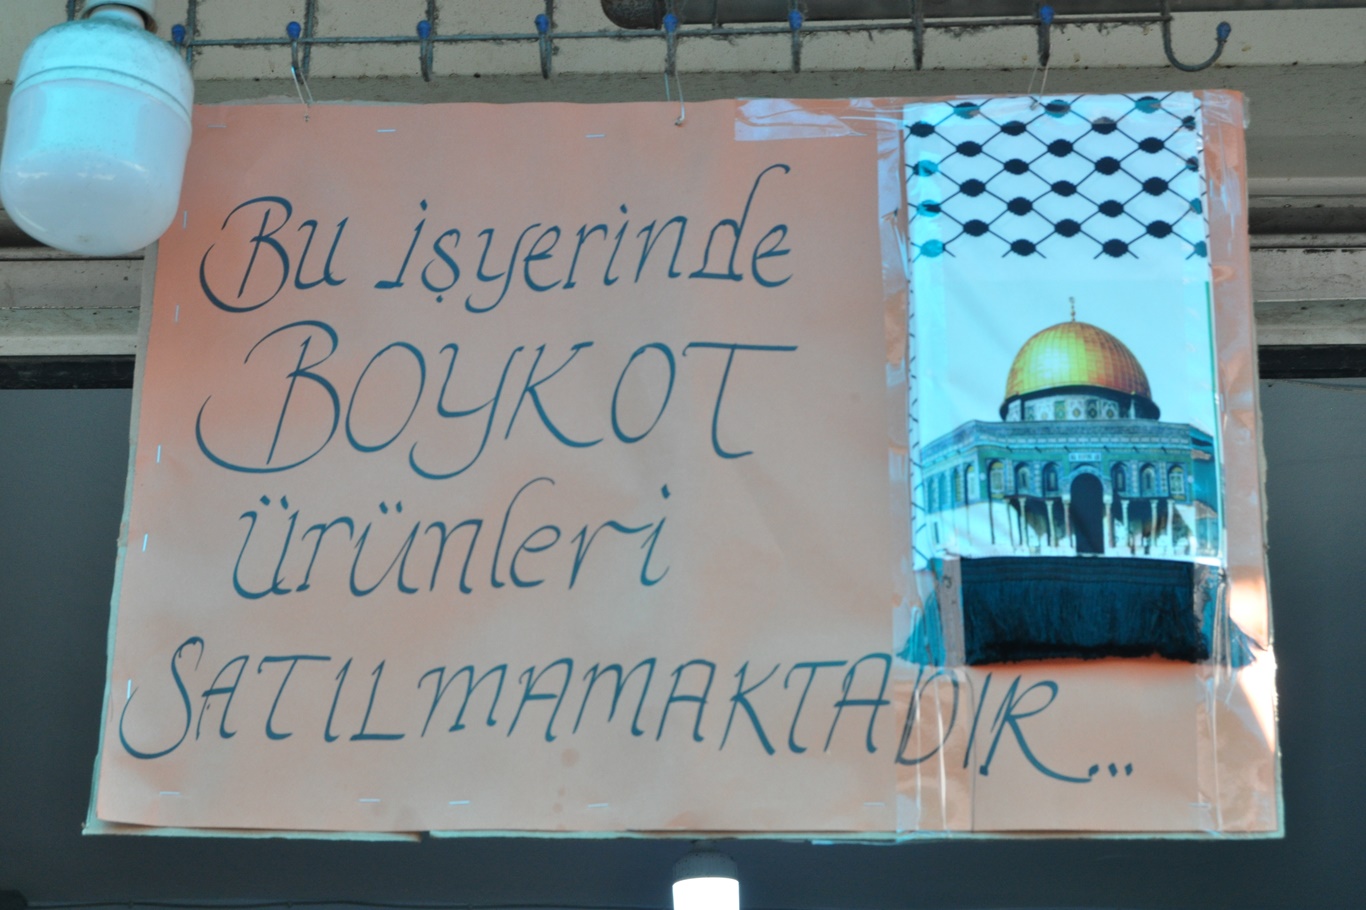 Bu işyerinde
BOYKOT
ürünleri
SATILMAMAKTADIR...